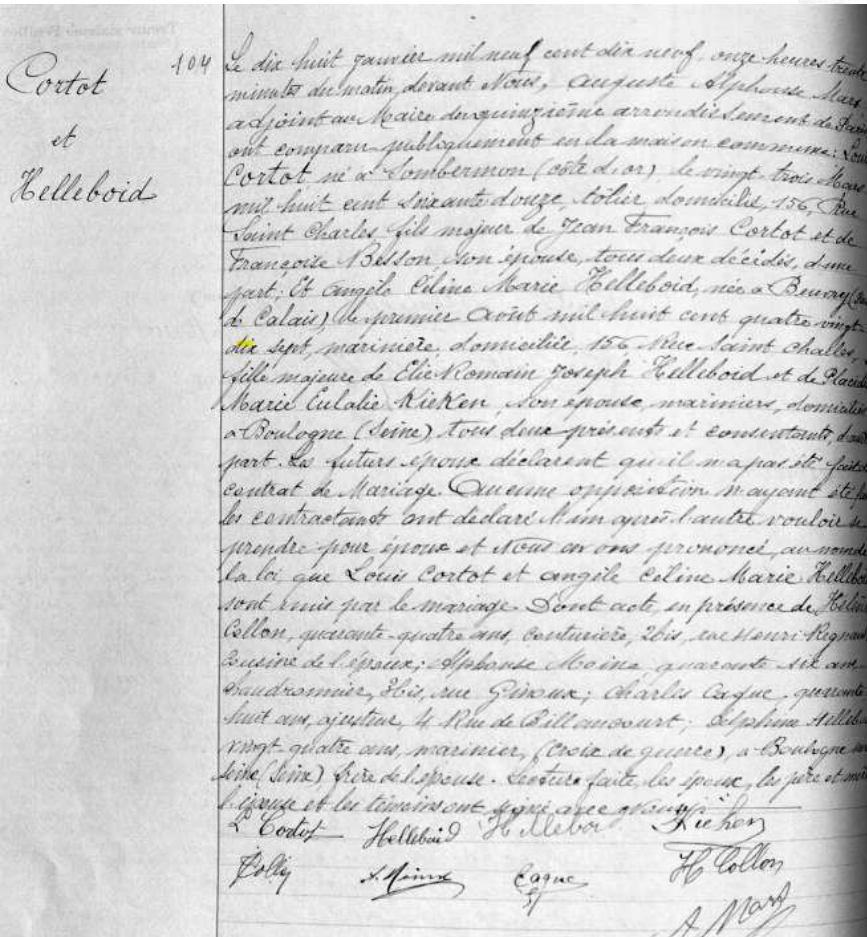 Cortot
et
Helleboid
104
Le dix huit janvier mil neuf cent dix neuf, onze heures trente
minutes du matin, devant Nous, Auguste Alphonse Mars
adjoint au Maire du quinzième arrondissement de Paris
ont comparu publiquement en la maison commune: Louis
Cortot, né à Sombernon (côte d'or) le vingt trois Mars
mil huit cent soixante douze, tôlier, domicilié, 156, Rue
Saint Charles fils majeur de Jean François Cortot et de
Françoise Besson son épouse, tous deux décédés, d'une
part; Et Angèle Céline Marie Helleboid, née à Beuvry (
de Calais), le premier Août mil huit cent quatre vingt
dix sept, marinière, domiciliée, 156 Rue Saint Charles,
fille majeure de Elie Romain Joseph Helleboid et de Placide
Marie Eulalie Kieken, son épouse, mariniers, domiciliés
à Boulogne (Seine), tous deux présents et consentants, d'autre
part. Les futurs époux déclarent qu'il n'a pas été fait de
contrat de Mariage. Aucune opposition n'ayant été
les contractants ont déclaré l'un après l'autre vouloir se
prendre pour époux et Nous avons prononcé, au nom de
la loi, que Louis Cortot et Angèle Céline Marie Helleboid
sont unis par le mariage. Dont acte, en présence de
Collon, quarante-quatre ans, couturière, 2bis, rue Henri Regnault
cousine de l'époux; Alphonse Moine quarante six ans
chaudronnier, rue Ginoux; Charles Caque, quarante
huit ans, ajusteur, 4 Rue de Billancourt; Delphine Helleboid
vingt-quatre ans, marinier, (croix de guerre), à Boulogne sur
Seine (Seine) frère de l'épouse. Lecture faite, les époux, les père et mère
l'épouse et les témoins ont signé avec Nous
L Cortot Helleboid Kieken
Caque H Collon
A Mars